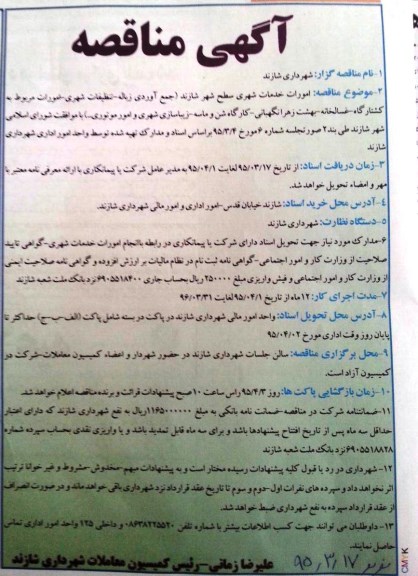 آگهی مناقصه
۱-نام مناقصه گزار: شهرداری شازند
۲-موضوع مناقصه: امورات خدمات شهری سطح شهر شازند (جمع آوری زباله-تنظیفات شهری-امورات مربوط به
کشتارگاه-غسالخانه-بهشت زهرا نگهبانی-کارگاه شن و ماسه-زیباسازی شهری و امور موتوری..) با موافقت شورای اسلامی
شهر شازند طی بند۲ صورتجلسه شماره ۶ مورخ ۹۵/۳/۴ براساس اسناد و مدارک تهیه شده توسط واحد امور اداری شهرداری
شازند
۳-زمان دریافت اسناد: از تاریخ ۹۵/۰۳/۱۷ لغایت ۹۵/۰۴/۱ به مدیر عامل شرکت یا پیمانکاری با ارائه معرفی نامه معتبر با
مهر و امضاء تحویل خواهد شد.
۴-آدرس محل خرید اسناد: شازند خیابان قدس-امور اداری و امور مالی شهرداری شازند.
۵-دستگاه نظارت: شهرداری شازند
۶-مدارک مورد نیاز جهت تحویل اسناد دارای شرکت یا پیمانکاری در رابطه باانجام امورات خدمات شهری-گواهی تایید
صلاحیت از وزارت کار و امور اجتماعی-گواهی نامه ثبت نام در نظام مالیات بر ارزش افزوده و گواهی نامه صلاحیت ایمنی
از وزارت کار و امور اجتماعی و فیش واریزی مبلغ ۲۵۰۰۰۰ ریال بحساب جاری ۶۹۰۵۵۱۸۴۰۰ نزد بانک ملت شعبه شازند
۷-مدت اجرای کار: ۱۲ماه از تاریخ ۹۵/۰۴/۱ لغایت ۹۶/۰۳/۳۱
۸-آدرس محل تحویل اسناد: واحد امور مالی شهرداری شازند در پاکت در بسته شامل پاکت (الف-ب-ج) حداکثر تا
پایان روز وقت اداری مورخ ۹۵/۰۴/۰۲
۹-محل برگزاری مناقصه: سالن جلسات شهرداری شازند در حضور شهردار و اعضاء کمیسیون معاملات-شرکت در
کمیسیون آزاد است.
۱۰-زمان بازگشایی پاکت ها: روز ۹۵/۴/۳ راس ساعت ۱۰ صبح پیشنهادات قرائت و برنده مناقصه اعلام خواهد شد.
۱۱-ضمانتنامه شرکت در مناقصه-ضمانت نامه بانکی به مبلغ ۱۱۶۵۰۰۰۰۰۰ریال به نفع شهرداری شازند که دارای اعتبار
حداقل سه ماه پس از تاریخ افتتاح پیشنهادها باشد و برای سه ماه قابل تمدید باشد و یا واریزی نقدی بحساب سپرده شماره
۶۹۰۵۵۱۸۸۲۸ نزد بانک ملت شعبه شازند
۱۲-شهرداری در رد یا قبول کلیه پیشنهادات رسیده مختار است و به پیشنهادات مبهم-مخدوش-مشروط و غیر خوانا ترتیب
اثر نخواهد داد و سپرده های نفرات اول-دوم و سوم تا تاریخ عقد قرارداد نزد شهرداری باقی خواهد ماند و در صورت انصراف
از عقد قرارداد سپرده به نفع شهرداری ضبط خواهد شد.
۱۳-داوطلبان می توانند جهت کسب اطلاعات بیشتر با شماره تلفن ۰۸۶۳۸۲۲۵۵۲۰ و داخلی ۱۲۵ واحد امور اداری تماس
حاصل نمایند.
علیرضا زمانی-رئیس کمیسیون معاملات شهرداری شازند
۹۵/۳/۱۷
CMYK